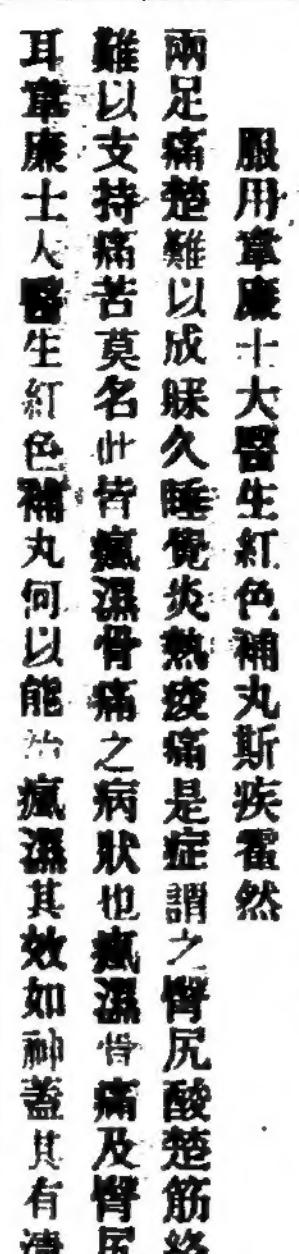 服用韋廉士大醫生紅色補丸斯疾霍然
兩足痛楚難以成寐久睡覺炎熱痠痛是症謂之臀尻酸楚筋絡
難以支持痛苦莫名此皆瘋濕骨痛之病狀也瘋濕骨痛及臀尻
耳韋廉士大醫生紅色補丸何以能治瘋濕其效如神蓋其有清